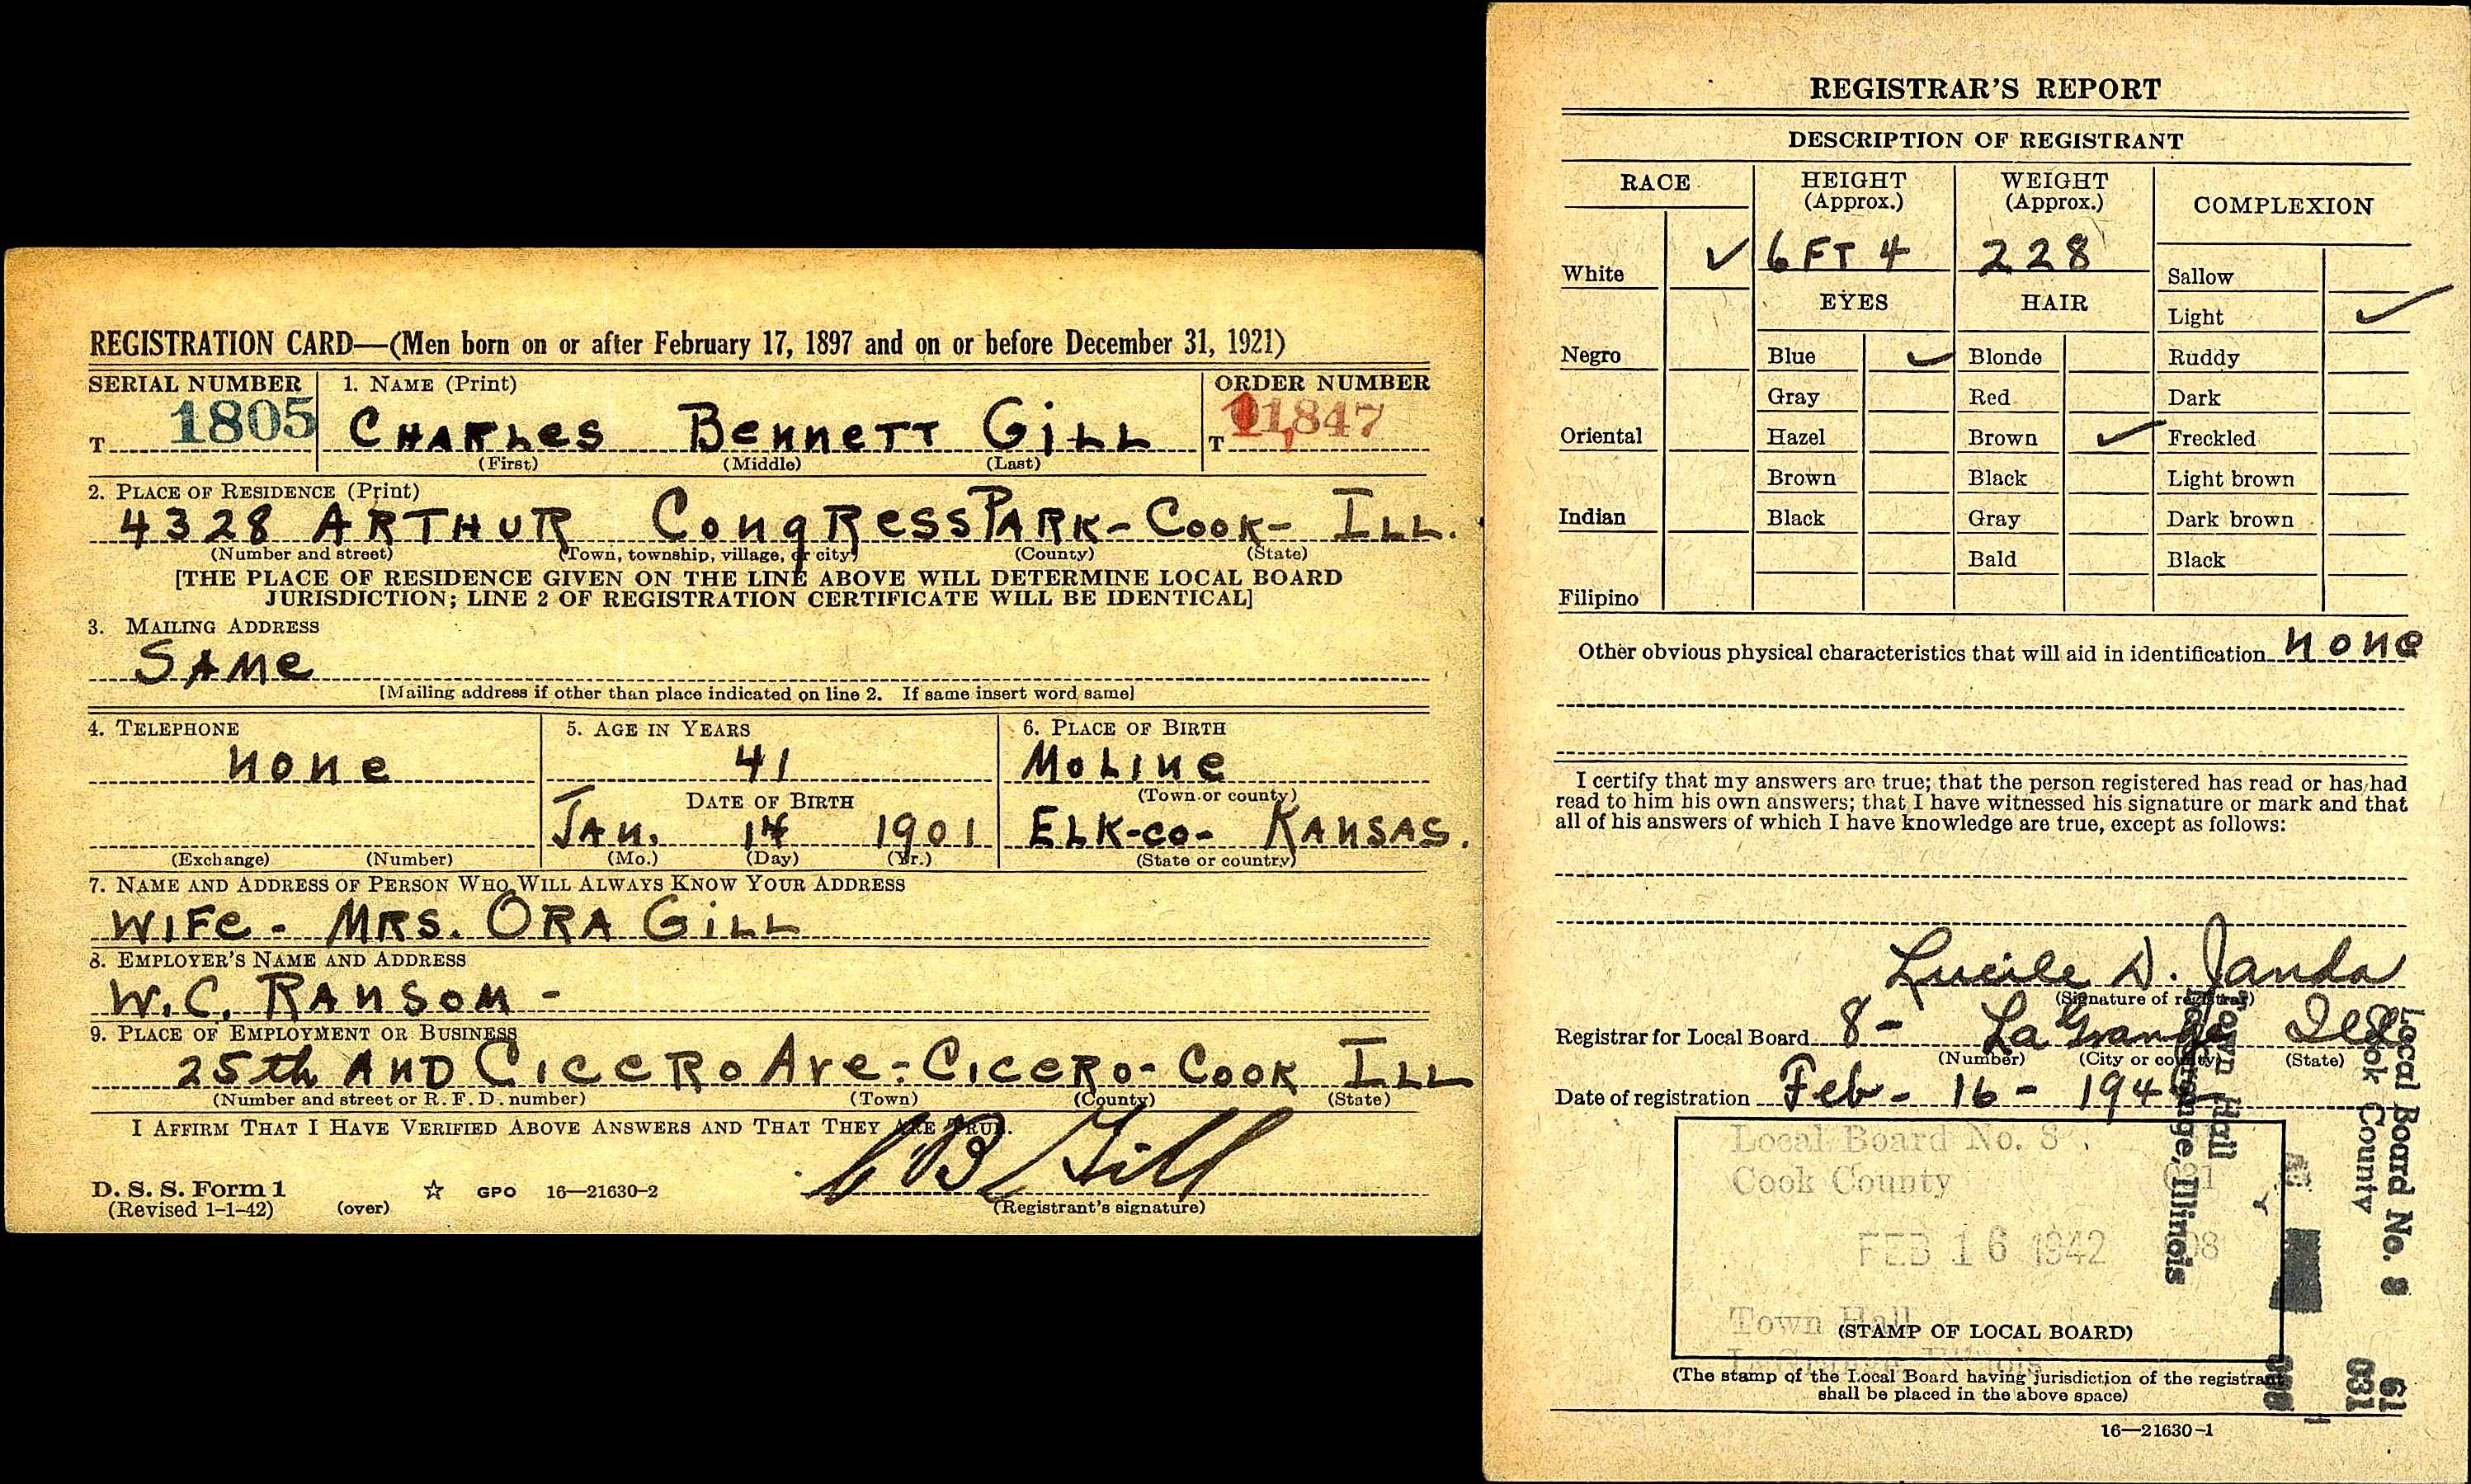 REGISTRATION CARD—(Men born on or after February 17, 1897 and on or before December 31, 1921)
SERIAL NUMBER 1. NAME (Print) ORDER NUMBER
T 1805 CHARLES BENNETT GILL T 11,847
(First) (Middle) (Last)
2. PLACE OF RESIDENCE (Print)
4328 ARTHUR CONGRESS PARK - COOK - ILL.
(Number and street) (Town, township, village, or city) (County) (State)
[THE PLACE OF RESIDENCE GIVEN ON THE LINE ABOVE WILL DETERMINE LOCAL BOARD
JURISDICTION; LINE 2 OF REGISTRATION CERTIFICATE WILL BE IDENTICAL]
3. MAILING ADDRESS
SAME
[Mailing address if other than place indicated on line 2. If same insert word same]
4. TELEPHONE 5. AGE IN YEARS 6. PLACE OF BIRTH
NONE 41 MOLINE
(Town or county)
DATE OF BIRTH
JAN. 14 1901 ELK-CO- KANSAS.
(Exchange) (Number) (Mo.) (Day) (Yr.) (State or country)
7. NAME AND ADDRESS OF PERSON WHO WILL ALWAYS KNOW YOUR ADDRESS
WIFE - MRS. ORA GILL
8. EMPLOYER'S NAME AND ADDRESS
W.C. RANSOM -
9. PLACE OF EMPLOYMENT OR BUSINESS
25th AND CICERO AVE - CICERO - COOK ILL
(Number and street or R. F. D. number) (Town) (County) (State)
I AFFIRM THAT I HAVE VERIFIED ABOVE ANSWERS AND THAT THEY ARE TRUE.
C B Gill
D. S. S. Form 1
(Revised 1-1-42) (over) ☆ GPO 16—21630-2 (Registrant's signature)
REGISTRAR'S REPORT
DESCRIPTION OF REGISTRANT
RACE HEIGHT (Approx.) WEIGHT (Approx.) COMPLEXION
White ✓ 6 FT 4 228 Sallow
EYES HAIR Light ✓
Negro Blue ✓ Blonde Ruddy
Gray Red Dark
Oriental Hazel Brown ✓ Freckled
Brown Black Light brown
Indian Black Gray Dark brown
Bald Black
Filipino
Other obvious physical characteristics that will aid in identification NONE
I certify that my answers are true; that the person registered has read or has had
read to him his own answers; that I have witnessed his signature or mark and that
all of his answers of which I have knowledge are true, except as follows:
Lucile D. Janda
(Signature of registrar)
Registrar for Local Board 8 - La Grange Ill
(Number) (City or county) (State)
Date of registration Feb - 16 - 1942
Local Board No. 8
Cook County 031
FEB 16 1942 08
Town Hall
LaGrange, Illinois
(STAMP OF LOCAL BOARD)
(The stamp of the Local Board having jurisdiction of the registrant
shall be placed in the above space)
16—21630-1
Local Board No. 8 61
Cook County 031
Town Hall
LaGrange, Illinois